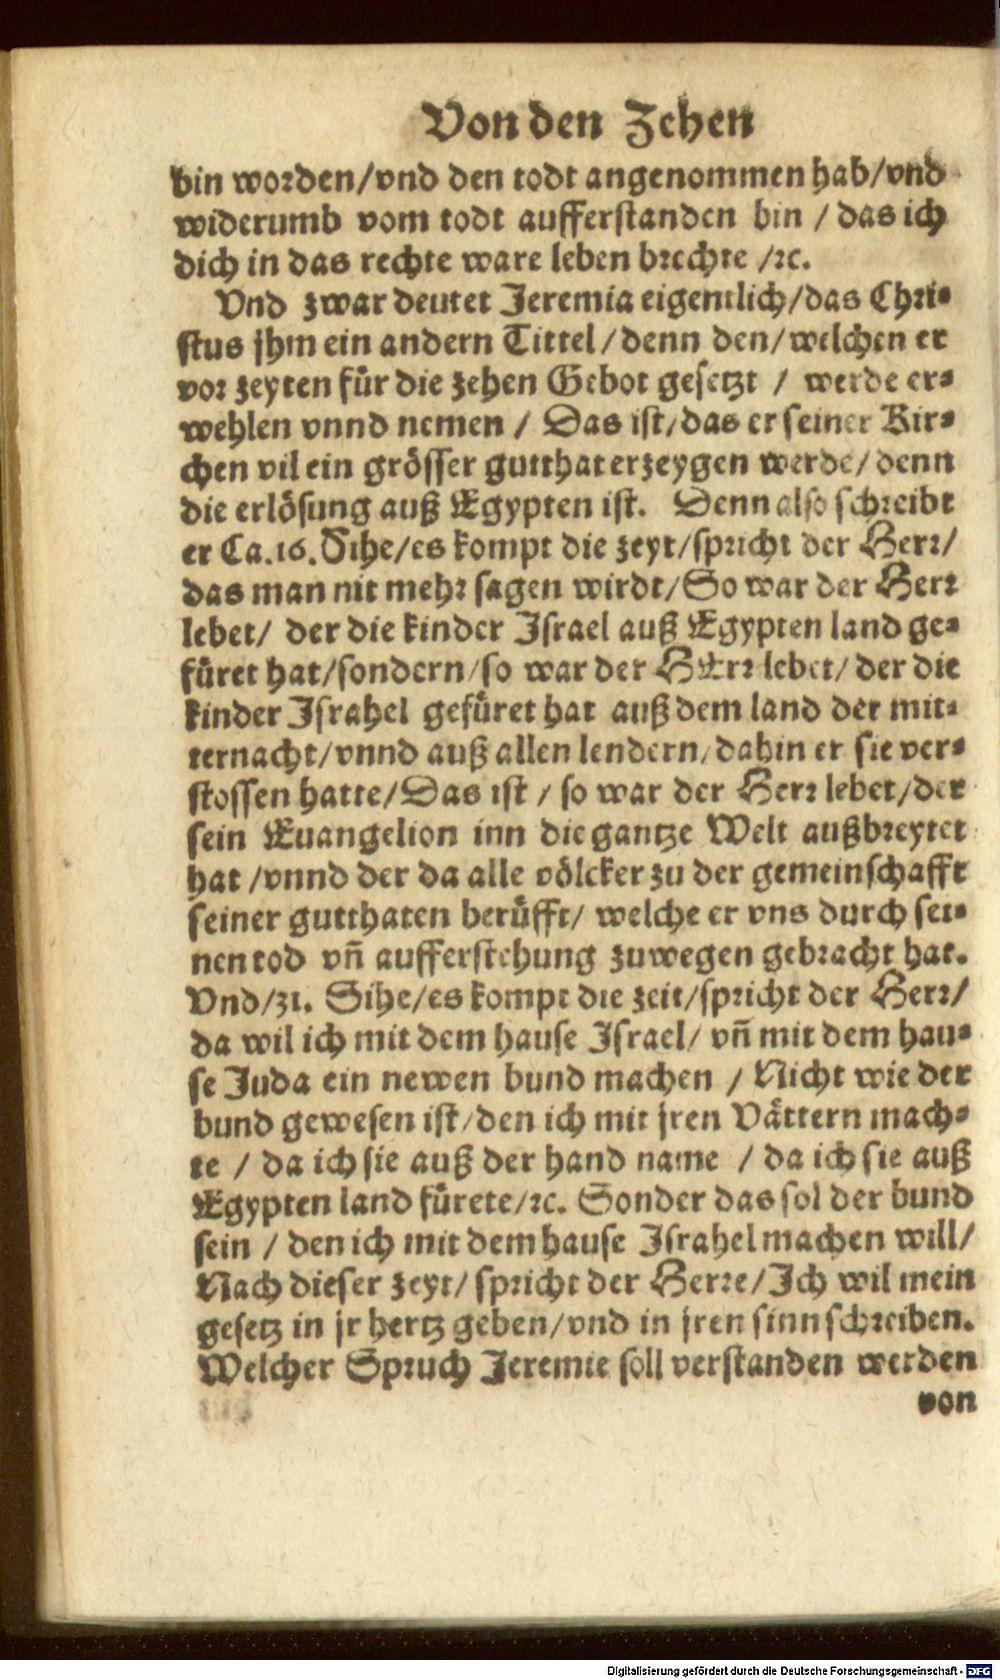 Von den Zehen
bin worden/vnd den todt angenommen hab/vnd
widerumb vom todt aufferstanden bin / das ich
dich in das rechte ware leben brechte /ꝛc.
Vnd zwar deutet Jeremia eigentlich/das Chri-
stus jhm ein andern Tittel/denn den/welchen er
vor zeyten für die zehen Gebot gesetzt / werde er-
wehlen vnnd nemen / Das ist/das er seiner Kir-
chen vil ein grösser gutthat erzeygen werde/denn
die erlösung auß Egypten ist. Denn also schreibt
er Ca.16. Sihe/es kompt die zeyt/spricht der Herr/
das man nit mehr sagen wirdt/So war der Herr
lebet/ der die kinder Israel auß Egypten land ge-
füret hat/sondern/so war der HErr lebet/der die
kinder Israhel gefüret hat auß dem land der mit-
ternacht/vnnd auß allen lendern/dahin er sie ver-
stossen hatte/Das ist / so war der Herr lebet/der
sein Euangelion inn die gantze Welt außbreytet
hat /vnnd der da alle völcker zu der gemeinschafft
seiner gutthaten berüfft/ welche er vns durch sei-
nen tod vñ aufferstehung zuwegen gebracht hat.
Vnd/31. Sihe/es kompt die zeit/spricht der Herr/
da wil ich mit dem hause Israel/ vñ mit dem hau-
se Juda ein newen bund machen / Nicht wie der
bund gewesen ist/den ich mit jren Vättern mach-
te / da ich sie auß der hand name / da ich sie auß
Egypten land fürete/ꝛc. Sonder das sol der bund
sein / den ich mit dem hause Israhel machen will/
Nach dieser zeyt/ spricht der Herre/Ich wil mein
gesetz in jr hertz geben/vnd in jren sinn schreiben.
Welcher Spruch Jeremie soll verstanden werden
von
Digitalisierung gefördert durch die Deutsche Forschungsgemeinschaft - DFG